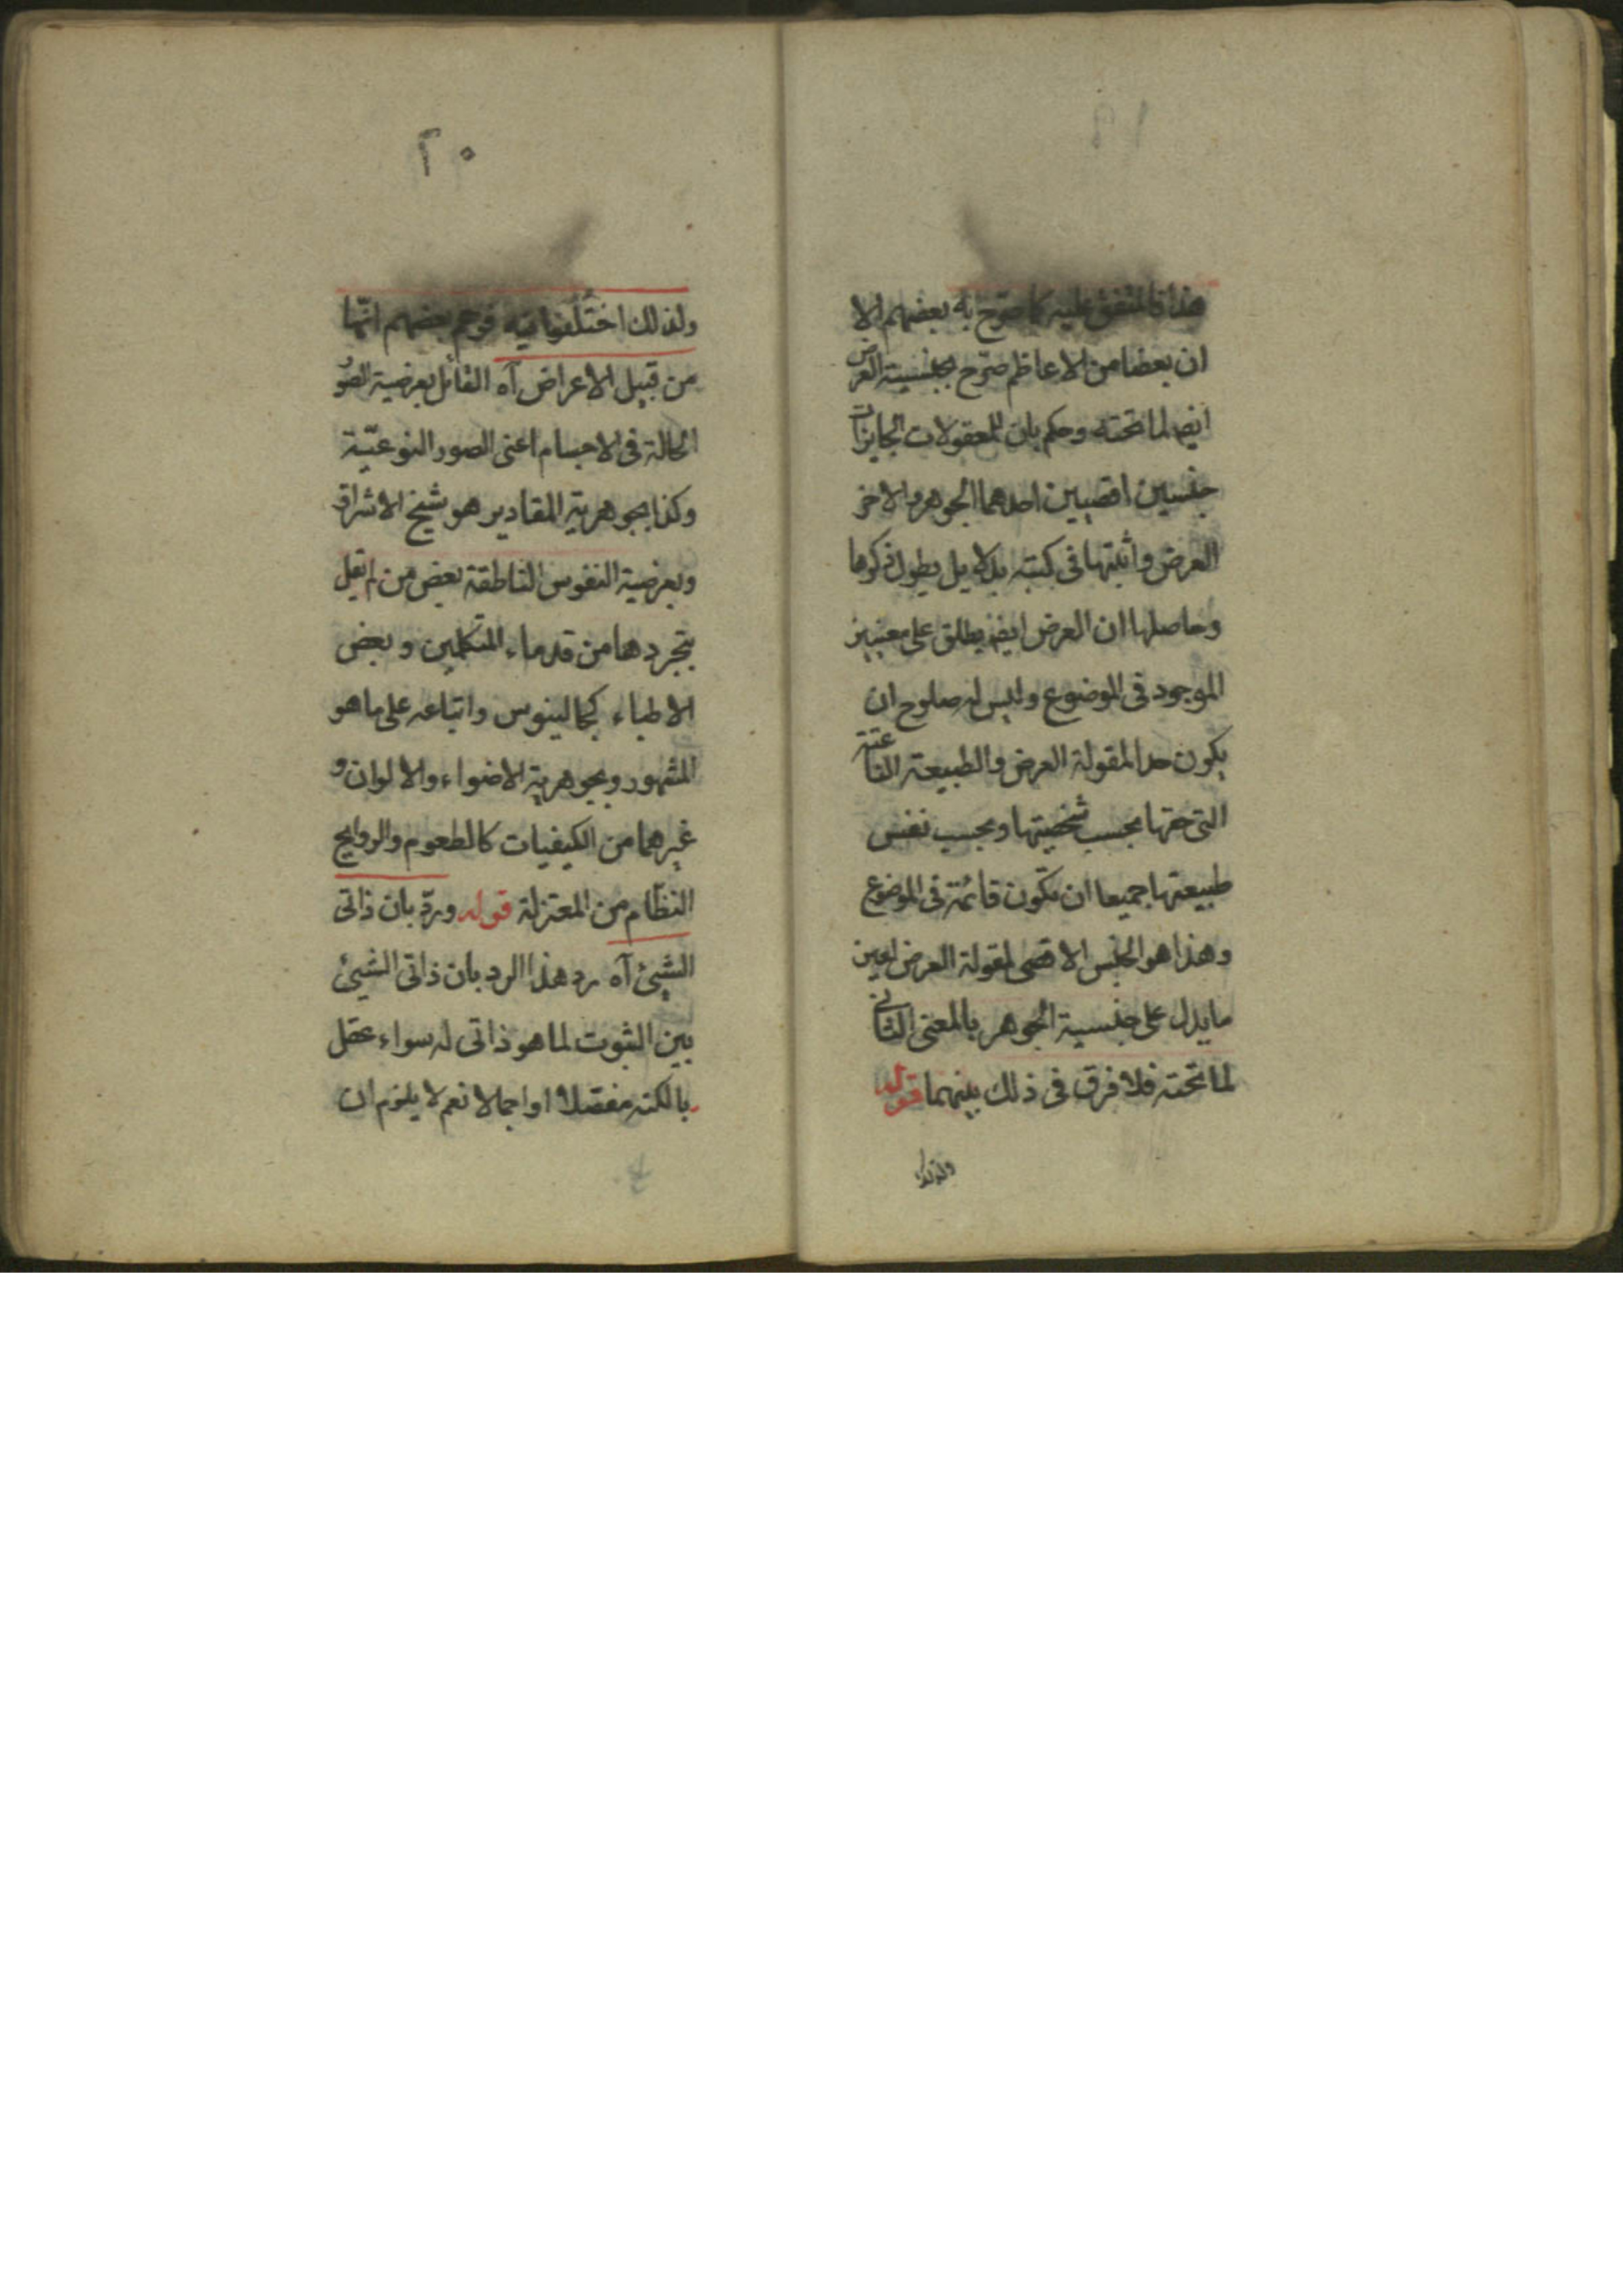 ١٩
هذا فالمتفق عليه كما صرّح به بعضهم الا
ان بعضا من الاعاظم صرّح بجنسية العرض
ايضا لما تحته وحكم بان للمعقولات الجايزات
جنسين اقصيين احدهما الجوهر والاخر
العرض واثبتها فى كتبه بدلايل يطول ذكرها
وحاصلها ان العرض ايضا يطلق على معنيين
الموجود فى الموضوع وليس له صلوح ان
يكون حدا لمقولة العرض والطبيعة الناعتة
التى حقها بحسب شخصيتها وبحسب نفس
طبيعتها جميعا ان تكون قائمة فى الموضوع
وهذا هو الجنس الاقصى لمقولة العرض لعين
ما يدل على جنسية الجوهر بالمعنى الثانى
لما تحته فلا فرق فى ذلك بينهما قوله
ولذلك
٢٠
ولذلك اختلفوا فيه فوهم بعضهم انّها
من قبيل الاعراض آه القائل بعرضية الصور
الحالة فى الاجسام اعنى الصور النوعيّة
وكذا بجوهرية المقادير هو شيخ الاشراق
وبعرضية النفوس الناطقة بعض من لم يقل
بتجردها من قدماء المتكلمين وبعض
الاطباء كجالينوس واتباعه على ما هو
المشهور وبجوهرية الاضواء والالوان و
غيرهما من الكيفيات كالطعوم والروايح
النظّام من المعتزلة قوله وردّ بان ذاتى
الشيئ آه رد هذا الرد بان ذاتى الشيئ
بين الثبوت لما هو ذاتى له سواء عقل
بالكنه مفصّلا او اجمالا نعم لا يلزم ان